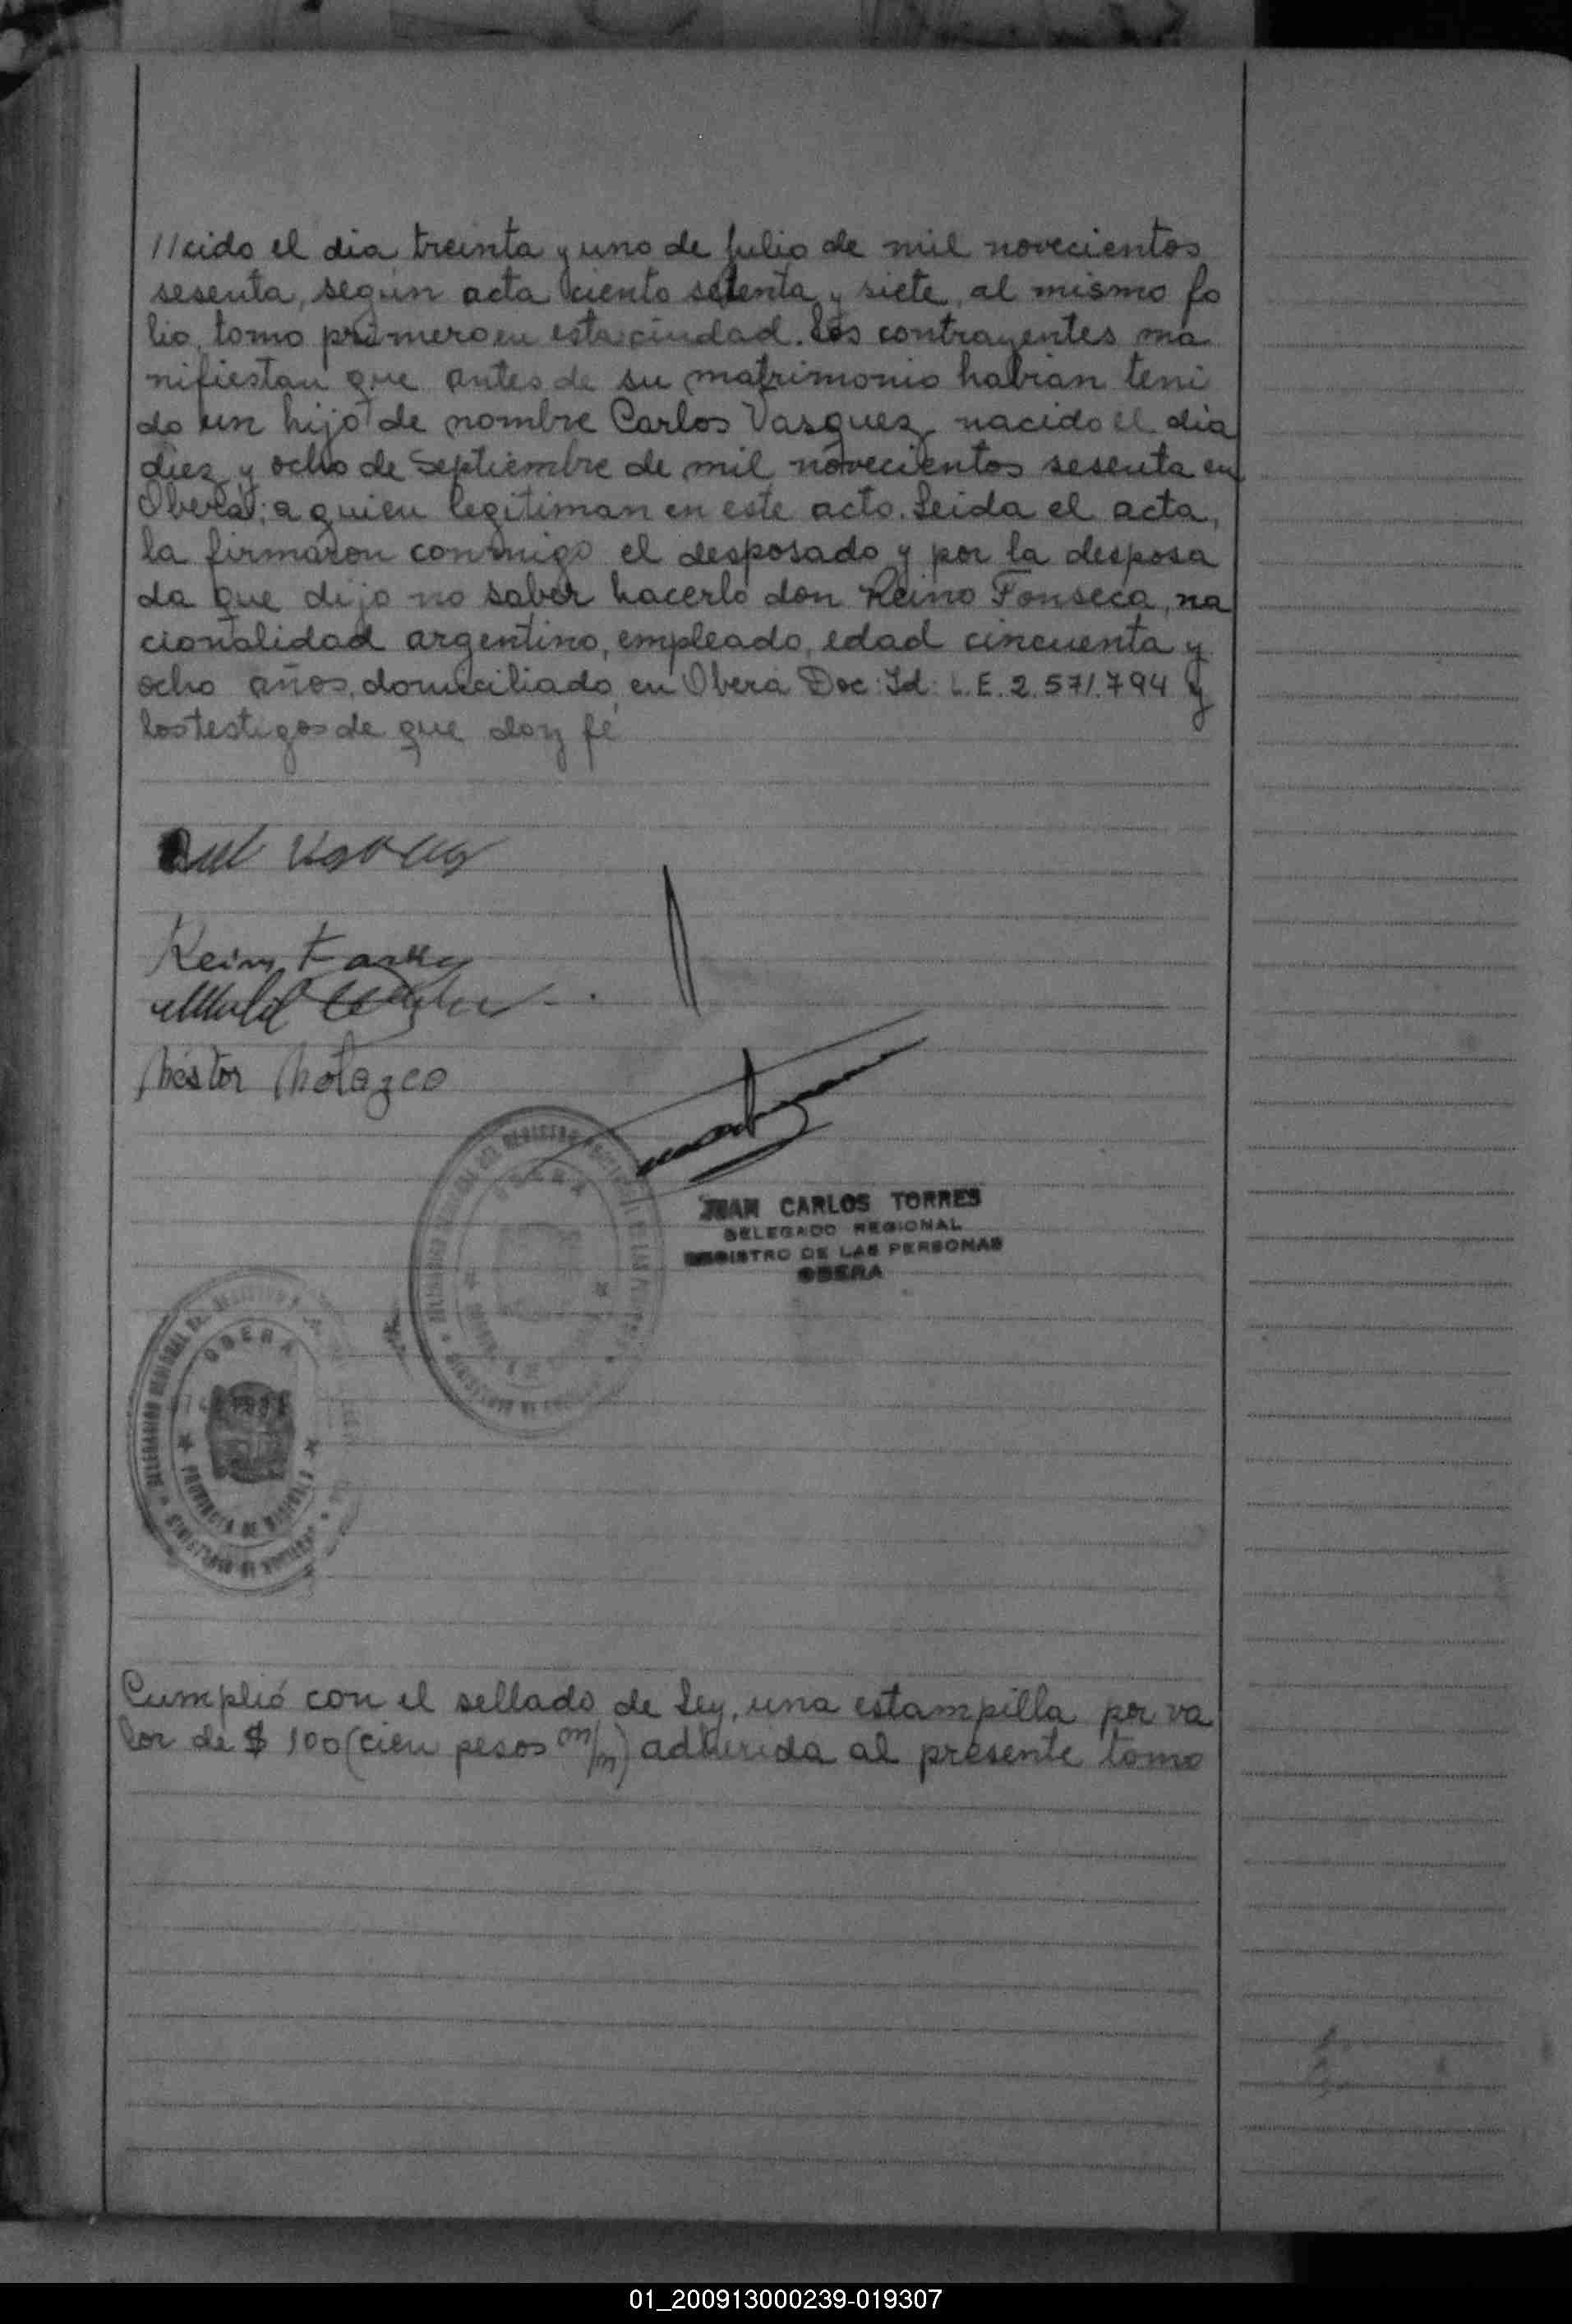 //cido el dia treinta y uno de Julio de mil novecientos
sesenta, según acta ciento setenta y siete, al mismo fo
lio, tomo primero en esta ciudad. Los contrayentes ma
nifiestan que antes de su matrimonio habian teni
do un hijo de nombre Carlos Vasquez nacido el dia
diez y ocho de Septiembre de mil novecientos sesenta en
Oberá; a quien legitiman en este acto. Leida el acta,
la firmaron conmigo el desposado y por la desposa
da que dijo no saber hacerlo don Reino Fonseca, na
cionalidad argentino, empleado, edad cincuenta y
ocho años, domiciliado en Oberá Doc: Id: L.E. 2.571.794 y
los testigos de que doy fé
Reino
Néstor Notazeo
JUAN CARLOS TORRES
DELEGADO REGIONAL
REGISTRO DE LAS PERSONAS
OBERA
OBERA
DELEGACION REGIONAL DEL REGISTRO
PROVINCIA DE MISIONES
MINISTERIO DE
Cumplió con el sellado de Ley, una estampilla por va
lor de $ 100 (cien pesos m/n) adherida al presente tomo
01_200913000239-019307